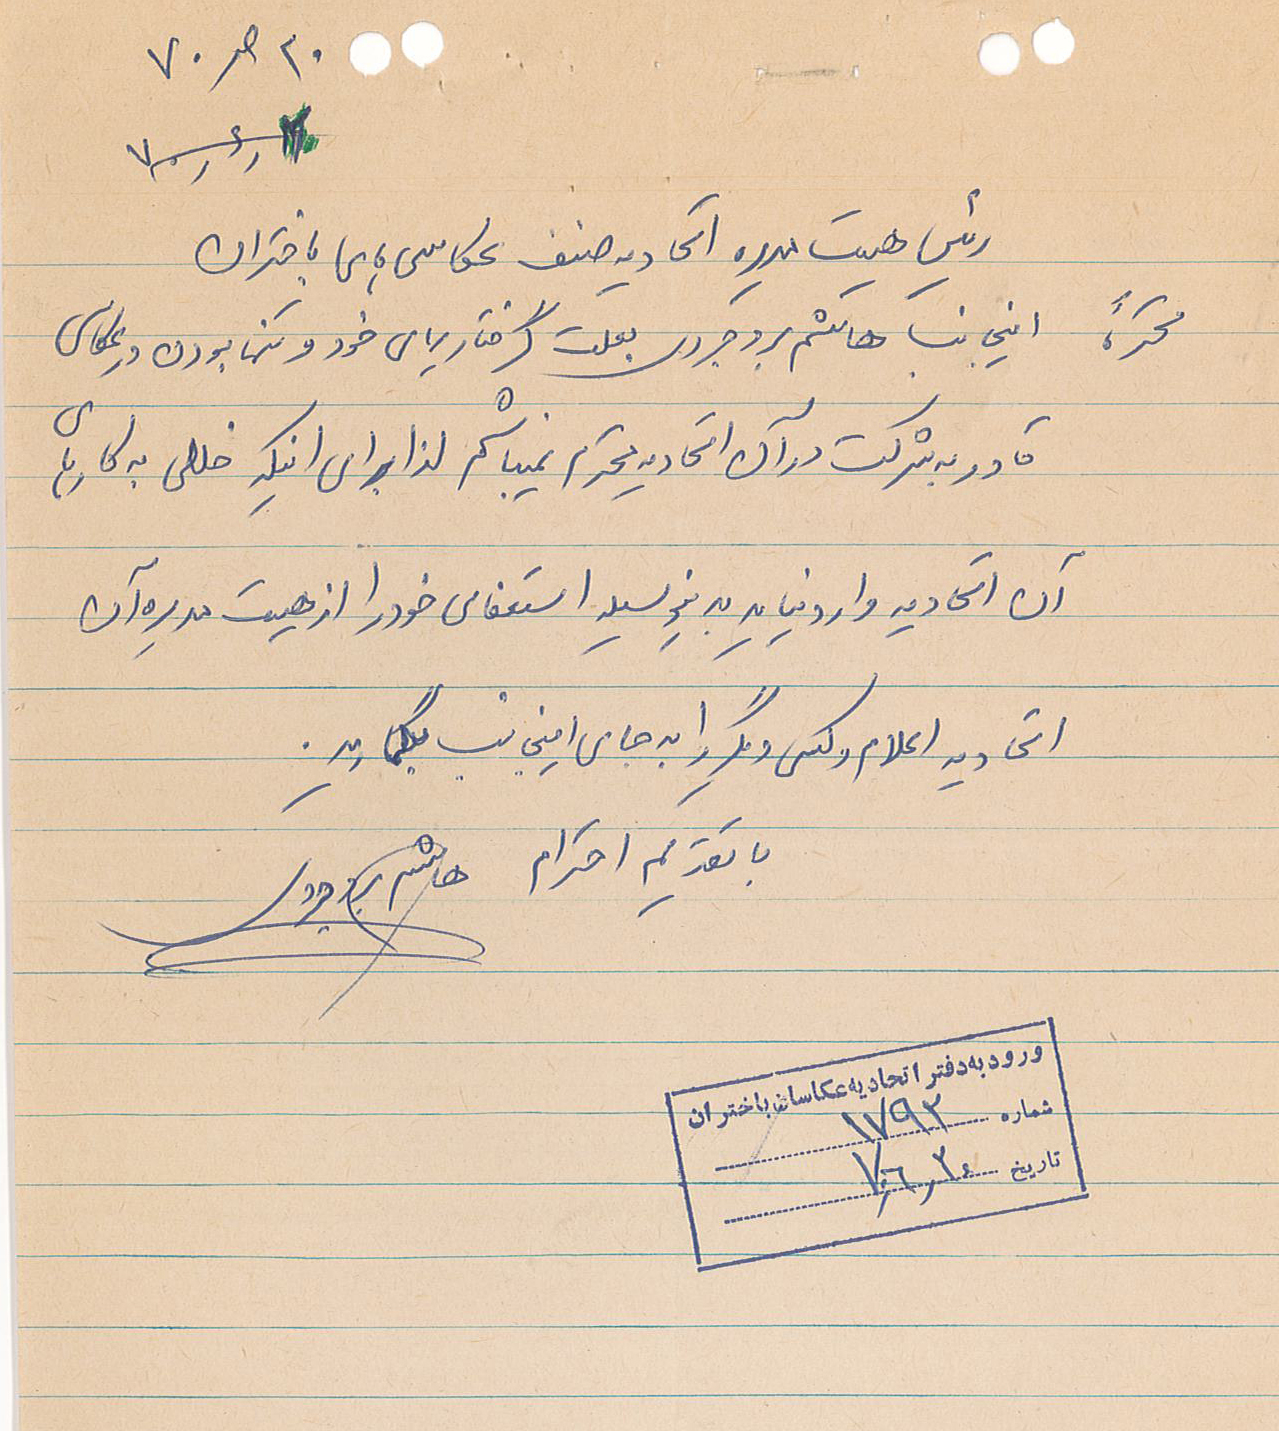 ۳۰ مهر ۷۰
۷۰٫۶٫
رئیس هیئت مدیره اتحادیه صنف عکاسی های باختران
محترماً اینجانب هاشم بروجردی بعلت گرفتاریهای خود و تنها بودن در عکاسی
قادر به شرکت در آن اتحادیه محترم نمیباشم لذا برای اینکه خللی به کارهای
آن اتحادیه وارد نیاید بدینوسیله استعفای خود را از هیئت مدیره آن
اتحادیه اعلام و کسی دیگر را به جای اینجانب بگمارید.
با تقدیم احترام هاشم بروجردی
ورود به دفتر اتحادیه عکاسان باختران
شماره ۱۷۹۳
تاریخ ۷۰٫۶٫۳۰